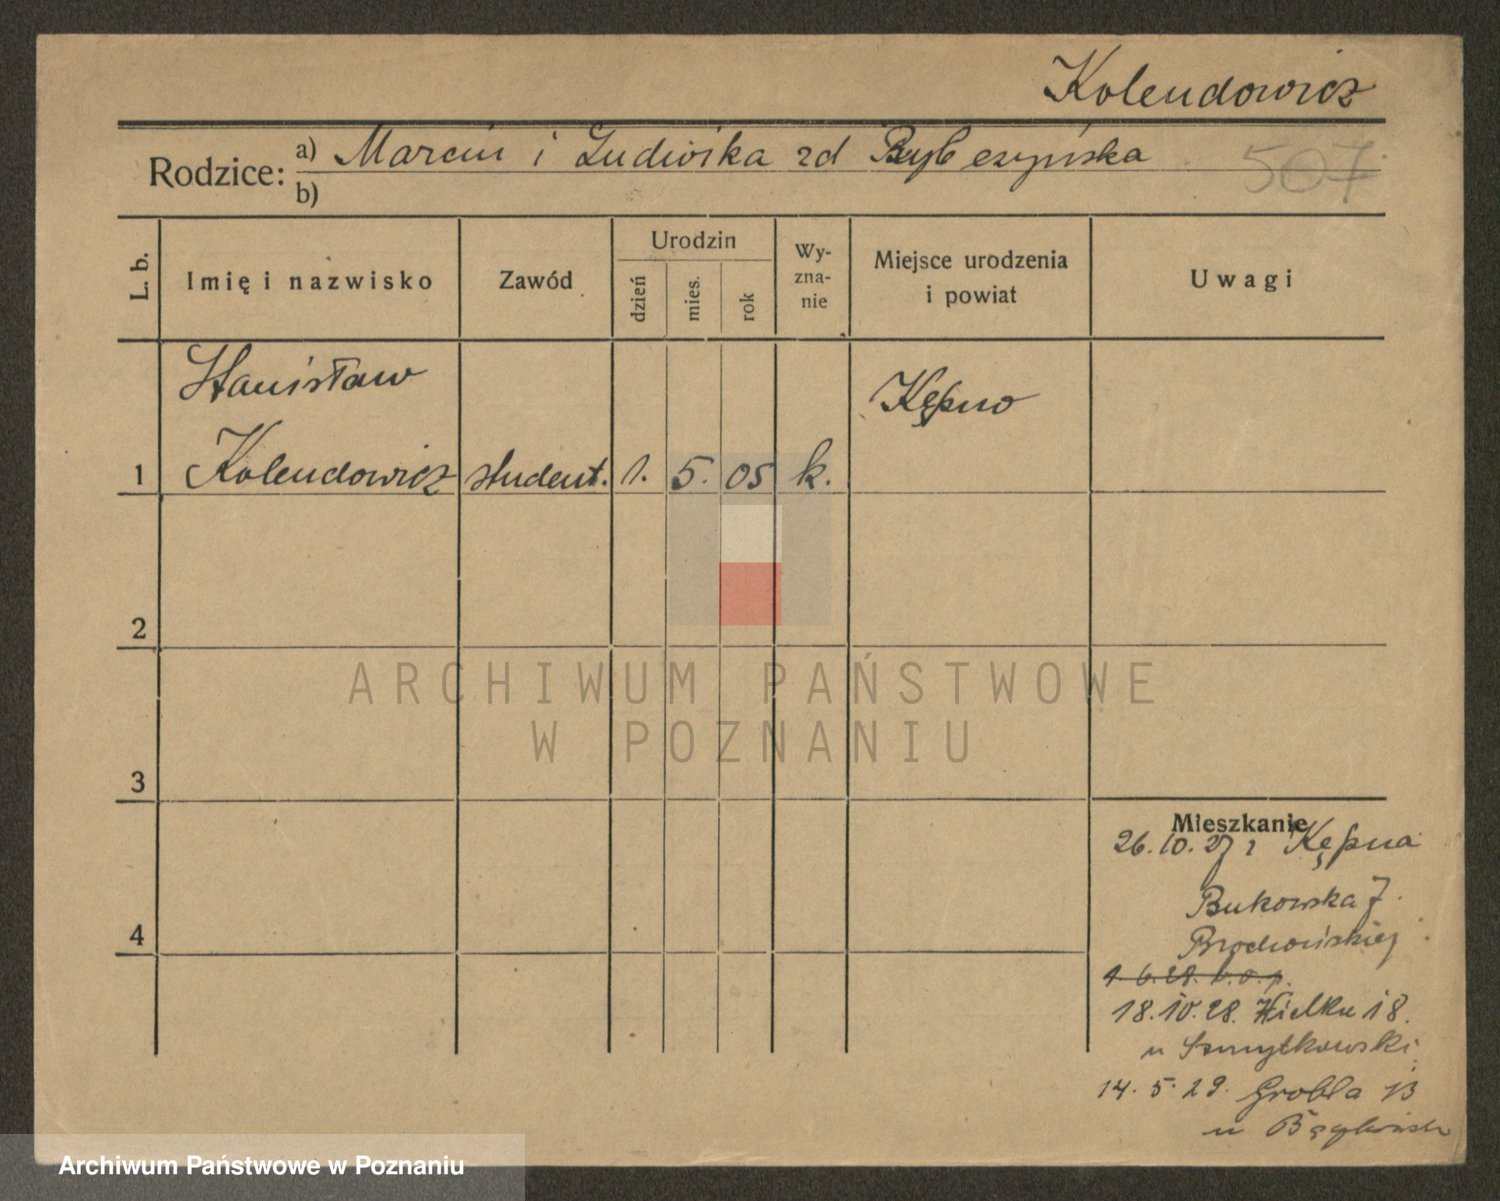 Kolendowicz
Rodzice:
a) Marcin i Ludwika zd
b)
507
L. b.
Imię i nazwisko
Zawód
Urodzin
dzień
mies.
rok
Wy-
zna-
nie
Miejsce urodzenia
i powiat
Uwagi
Stanisław
Kępno
1 Kolendowicz student. 1. 5. 05 k.
2
3
4
Mieszkanie
26.10.27 z Kępna
Bukowska 7.
1.6.28.
18.10.28. Wielka 18.
u Szmytkowski
14.5.29. Grobla 13
u
ARCHIWUM PAŃSTWOWE
W POZNANIU
Archiwum Państwowe w Poznaniu